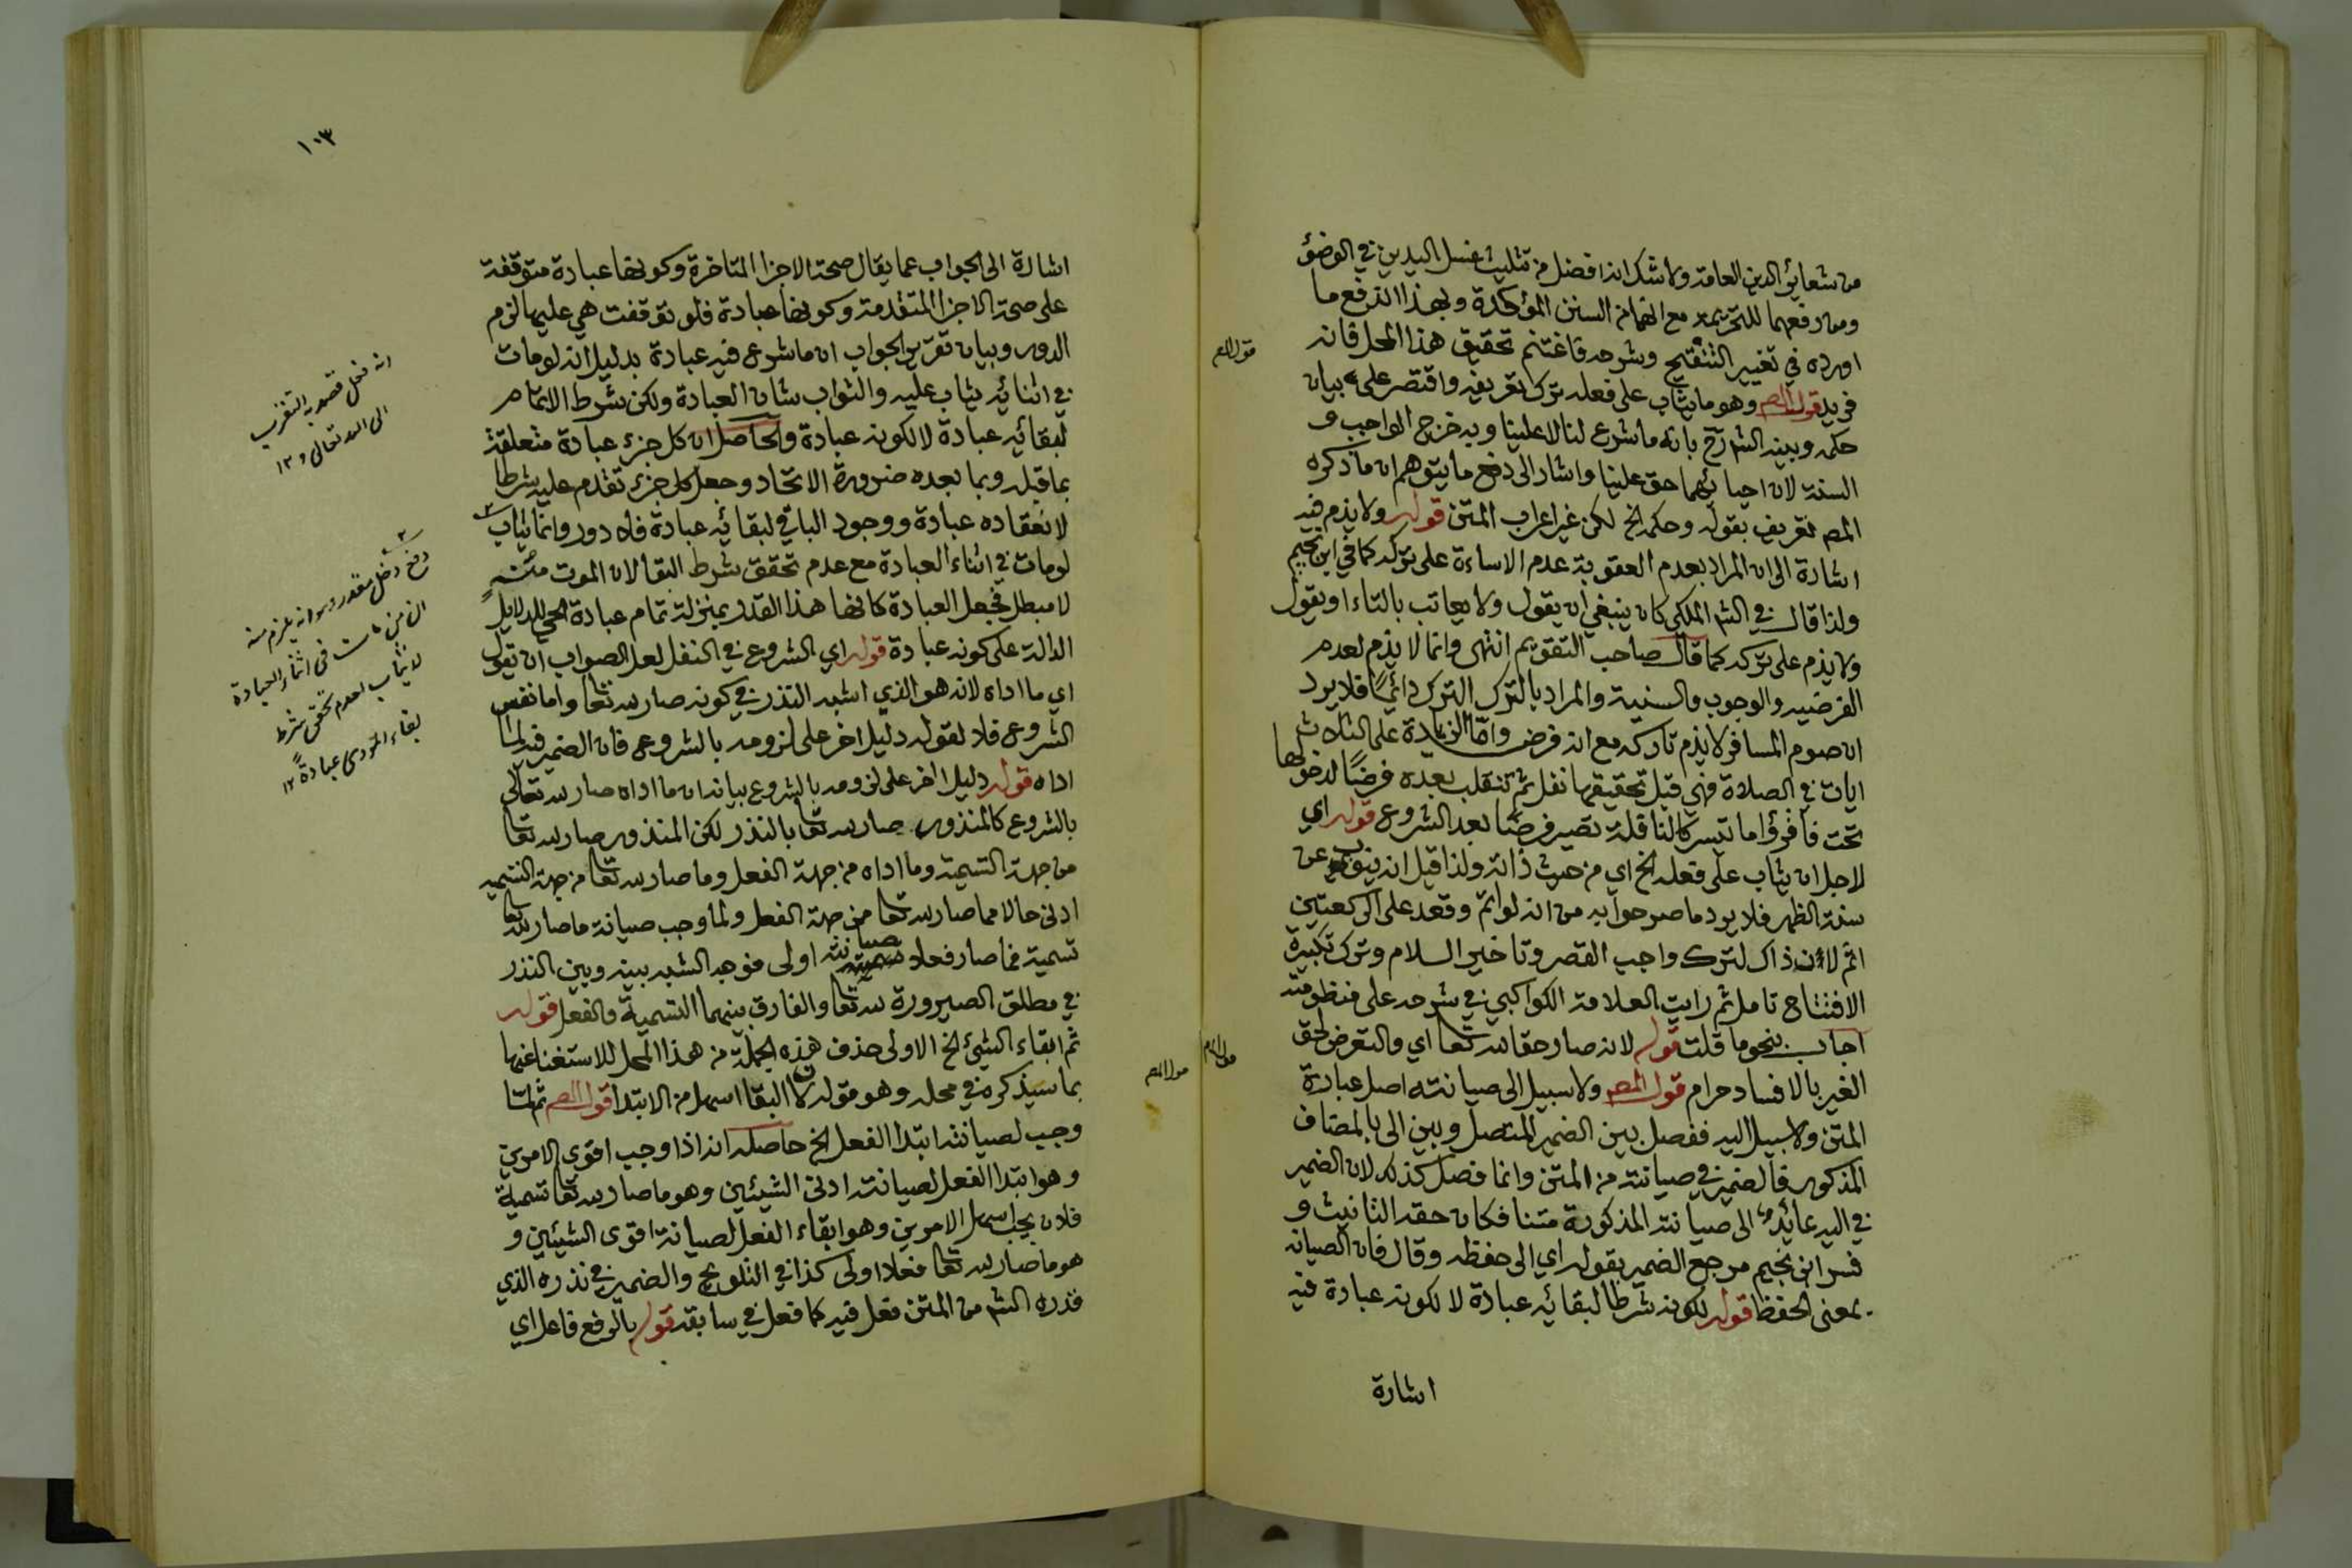 من شعائر الدين العامة ولا شك انه افضل من تثليث غسل اليدين في الوضؤ
ومن رفعهما للتحريمة مع انهما من السنن المؤكدة وبهذا اندفع ما
اورده في تغيير التنقيح وشرحه فاغتنم تحقيق هذا المحل فانه
فريد قول المص وهو ما يثاب على فعله ترك تعريفه واقتصر على بيان
حكمه وبينه الش رح بانه ما شرع لنا لا علينا وبه خرج الواجب و
السنة لان احيائهما حق علينا واشار الى دفع ما يتوهم ان ما ذكره
المص تعريف بقوله وحكمه الخ لكن غير اعراب المتن قوله ولا يذم فيه
اشارة الى ان المراد بعدم العقوبة عدم الاساءة على تركه كما في ابن نجيم
ولذا قال في الش الملكي كان ينبغي ان يقول ولا يعاتب بالتاء او يقول
ولا يذم على تركه كما قال صاحب التقويم انتهى وانما لا يذم لعدم
الفرضيه والوجوب والسنية والمراد بالترك الترك دائماً فلا يرد
ان صوم المسافر لا يذم تاركه مع انه فرض واما الزيادة على الثلاث
ايات في الصلاة فهي قبل تحقيقها نفل ثم تنقلب بعده فرضًا لدخولها
تحت فاقرؤا ما تيسر كالنافلة تصير فرضًا بعد الشروع قوله اي
لاجل ان يثاب على فعله الخ اي من حيث ذاته ولذا قيل انه ينوب عن
سنة الظهر فلا يرد ما صرحوا به من انه لو اتم وقعد على الركعتين
اثم لان ذاك لترك واجب القصر وتاخير السلام وترك تكبيرة
الافتتاح تامل ثم رايت العلامة الكواكبي في شرحه على منظومته
اجاب بنحو ما قلت قوله لانه صار حقا لله تعا اي والتعرض لحق
الغير بالافساد حرام قول المص ولا سبيل الى صيانته اصل عبارة
المتن ولا سبيل اليه ففصل بين الضمير المتصل وبين الى بالمضاف
المذكور فالضمير في صيانته من المتن وانما فصل كذلك لان الضمير
في اليه عائد الى صيانته المذكورة متنا فكان حقه التانيث و
فسر ابن نجيم مرجع الضمير بقوله اي الى حفظه وقال فان الصيانه
بمعنى الحفظ قوله لكونه شرطا لبقائه عبادة لا لكونه عبادة فيه
اشارة
قول المص
قول المص
١٠٣
اشارة الى الجواب عما يقال صحة الاجزا المتاخرة وكونها عبادة متوقفة
على صحة الاجزا المتقدمة وكونها عبادة فلو توقفت هي عليها لزم
الدور وبيان تقرير الجواب ان ما شرع فيه عبادة بدليل انه لو مات
في اثنائه يثاب عليه والثواب شان العبادة ولكن شرط الاتمام
لبقائه عبادة لا لكونه عبادة والحاصل ان كل جزء عبادة متعلقة
بما قبله وبما بعده ضرورة الاتحاد وجعل كل جزء تقدم عليه شرطا
لانعقاده عبادة ووجود الباقي لبقائه عبادة فلا دور وانما يثاب
لو مات في اثناء العبادة مع عدم تحقق شرط البقا لان الموت منته
لا مبطل فجعل العبادة كانها هذا القدر بمنزلة تمام عبادة الحي للدلايل
الدالة على كونه عبادة قوله اي الشروع في النفل لعل الصواب ان تقول
اي ما اداه لانه هو الذي اشبه النذر في كونه صار لله تعا واما نفس
الشروع فلا لقوله دليل اخر على لزومه بالشروع فان الضمير فيه لما
اداه قوله دليل اخر على لزومه بالشروع بيانه ان ما اداه صار لله تعالى
بالشروع كالمنذور صار لله تعا بالنذر لكن المنذور صار لله تعا
من جهة التسمية وما اداه من جهة الفعل وما صار لله تعا من جهة التسميه
ادنى حالا مما صار لله تعا من جهة الفعل ولما وجب صيانة ما صار لله تعا
تسمية فما صار فعلا صيانته اولى فوجه الشبه بينه وبين النذر
في مطلق الصيرورة لله تعا والفارق بينهما التسمية والفعل قوله
ثم ابقاء الشيء الخ الاولى حذف هذه الجملة من هذا المحل للاستغنا عنها
بما سيذكره في محله وهو قوله لان البقا اسهل من الابتدا قول المص ثم لما
وجب لصيانته ابتدا الفعل الخ حاصله انه اذا وجب اقوى الامرين
وهو ابتدا الفعل لصيانة ادنى الشيئين وهو ما صار لله تعا تسمية
فلان يجب اسهل الامرين وهو ابقاء الفعل لصيانة اقوى الشيئين و
هو ما صار لله تعا فعلا اولى كذا في التلويح والضمير في نذره الذي
قدره الش من المتن فعل فيه كما فعل في سابقه قوله بالرفع فاعل اي
انه فعل قصد به التقرب
الى الله تعالى ١٢
دفع دخل مقدر وهو انه يلزم منه
ان من مات في اثناء العبادة
لا يثاب لعدم تحقق شرط
بقاء المؤدى عبادةً ١٢
قول المص